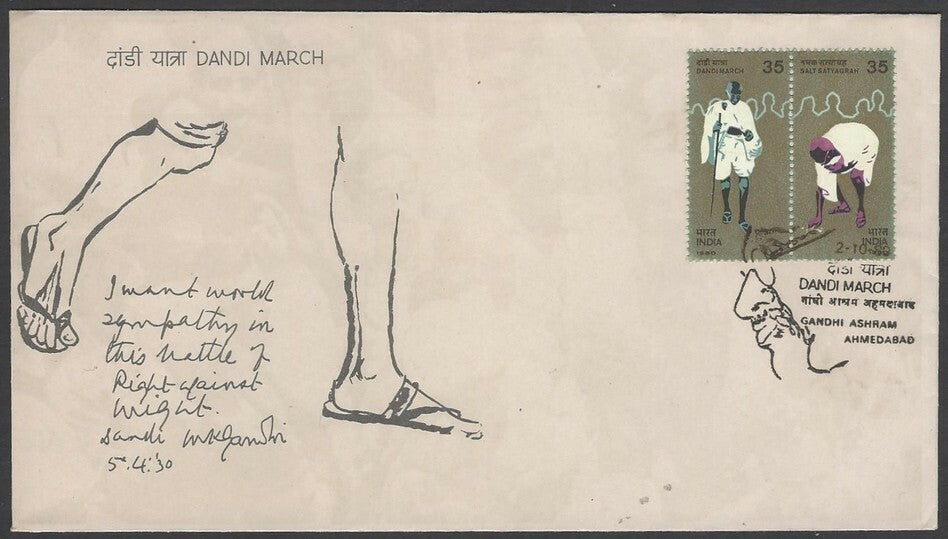 दांडी यात्रा DANDI MARCH
दांडी यात्रा
DANDI MARCH
35
नमक सत्याग्रह
SALT SATYAGRAH
35
भारत
INDIA
1980
भारत
INDIA
1980
2-10-80
दांडी यात्रा
DANDI MARCH
गांधी आश्रम अहमदाबाद
GANDHI ASHRAM
AHMEDABAD
I want world
sympathy in
this battle of
Right against
might.
Dandi MKGandhi
5.4.'30